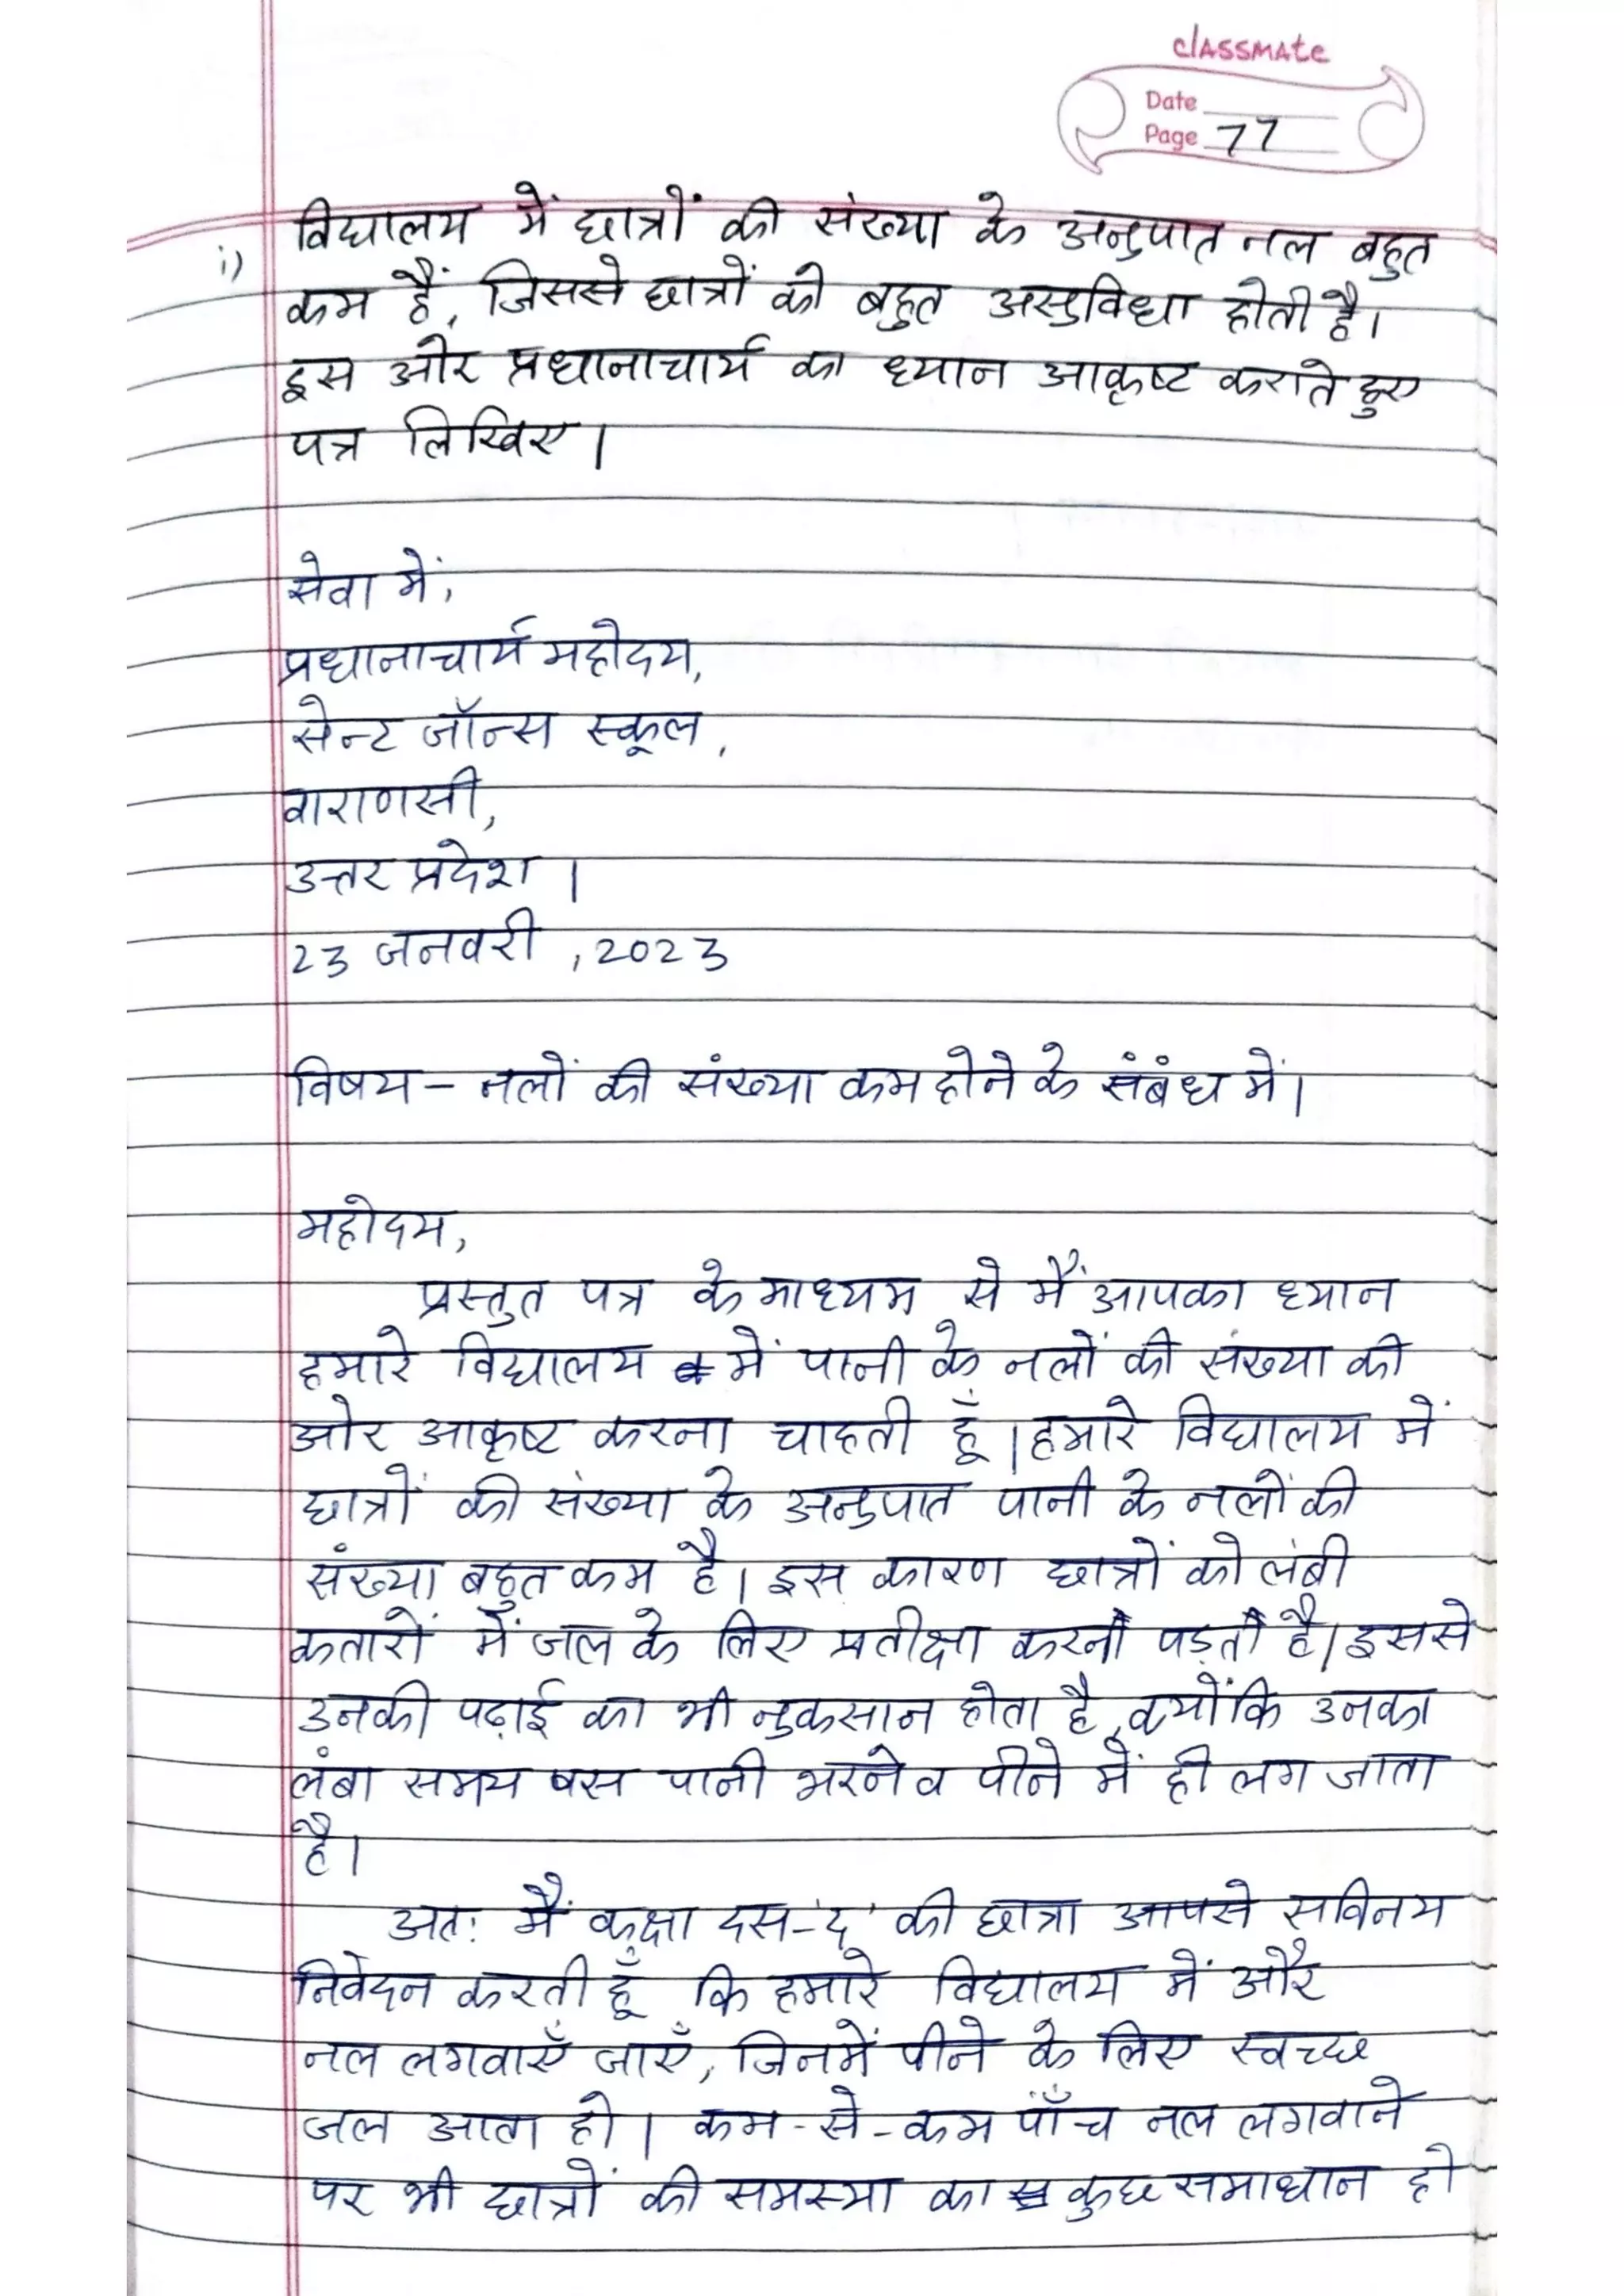 classmate
Date
Page 77
विद्यालय में छात्रों की संख्या के अनुपात नल बहुत
i)
कम हैं, जिससे छात्रों को बहुत असुविधा होती है।
इस ओर प्रधानाचार्य का ध्यान आकृष्ट कराते हुए
पत्र लिखिए।
सेवा में,
प्रधानाचार्य महोदय,
सेन्ट जॉन्स स्कूल,
वाराणसी,
उत्तर प्रदेश।
23 जनवरी, 2023
विषय - नलों की संख्या कम होने के संबंध में।
महोदय,
प्रस्तुत पत्र के माध्यम से मैं आपका ध्यान
हमारे विद्यालय में पानी के नलों की संख्या की
ओर आकृष्ट करना चाहती हूँ। हमारे विद्यालय में
छात्रों की संख्या के अनुपात पानी के नलों की
संख्या बहुत कम है। इस कारण छात्रों को लंबी
कतारों में जल के लिए प्रतीक्षा करनी पड़ती है। इससे
उनकी पढ़ाई का भी नुकसान होता है, क्योंकि उनका
लंबा समय बस पानी भरने व पीने में ही लग जाता
है।
अतः मैं कक्षा दस-'द' की छात्रा आपसे सविनय
निवेदन करती हूँ कि हमारे विद्यालय में और
नल लगवाएँ जाएँ, जिनमें पीने के लिए स्वच्छ
जल आता हो। कम-से-कम पाँच नल लगवाने
पर भी छात्रों की समस्या का कुछ समाधान हो